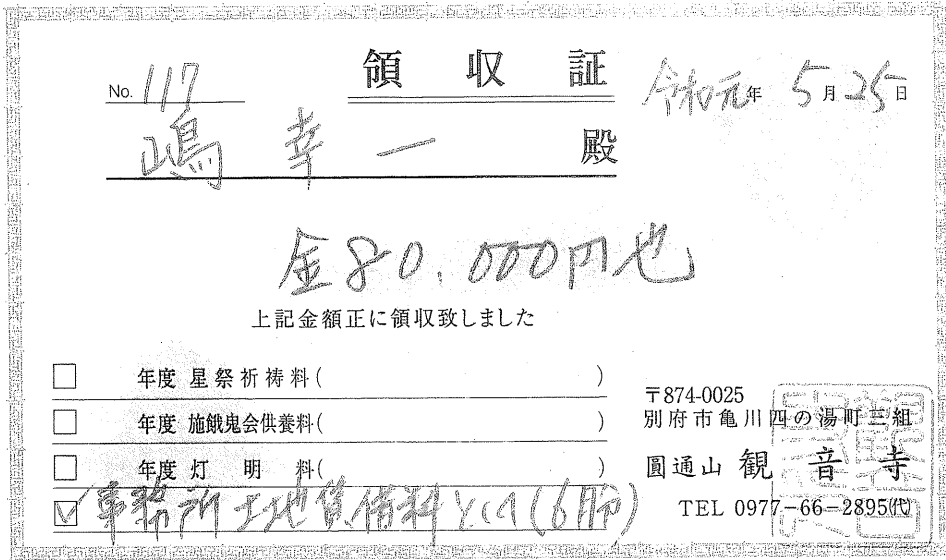 領収証
No. 117
令和元年 5月25日
嶋 幸一 殿
金80,000円也
上記金額正に領収致しました
□ 年度 星祭祈祷料( )
□ 年度 施餓鬼会供養料( )
□ 年度 灯明料( )
☑ 事務所土地賃借料として(6月分)
〒874-0025
別府市亀川四の湯町三組
圓通山 観音寺
TEL 0977-66-2895㈹